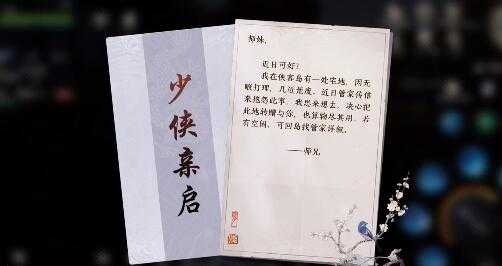 少侠亲启
师妹，
近日可好？
我在侠客岛有一处宅地，因无
暇打理，几近荒废。近日管家传信
来抱怨此事，我思来想去，决心把
此地转赠与你，也算物尽其用。若
有空闲，可回岛找管家详叙。
——师兄